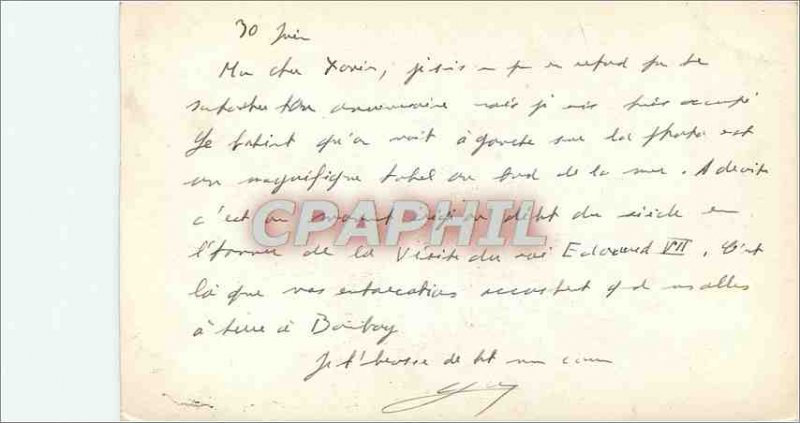 30 Juin
Mon cher Xavier, je suis un peu en retard pour te
souhaiter ton anniversaire mais je suis très occupé
Le batiment qu'on voit à gauche sur la photo est
un magnifique hotel au bord de la mer. A droite
c'est un monument érigé au début du siècle en
l'honneur de la Visite du roi Edouard VII. C'est
là que nos embarcations accostent qd ns allons
à terre à Bombay
Je t'embrasse de tt mon coeur
CPAPHIL